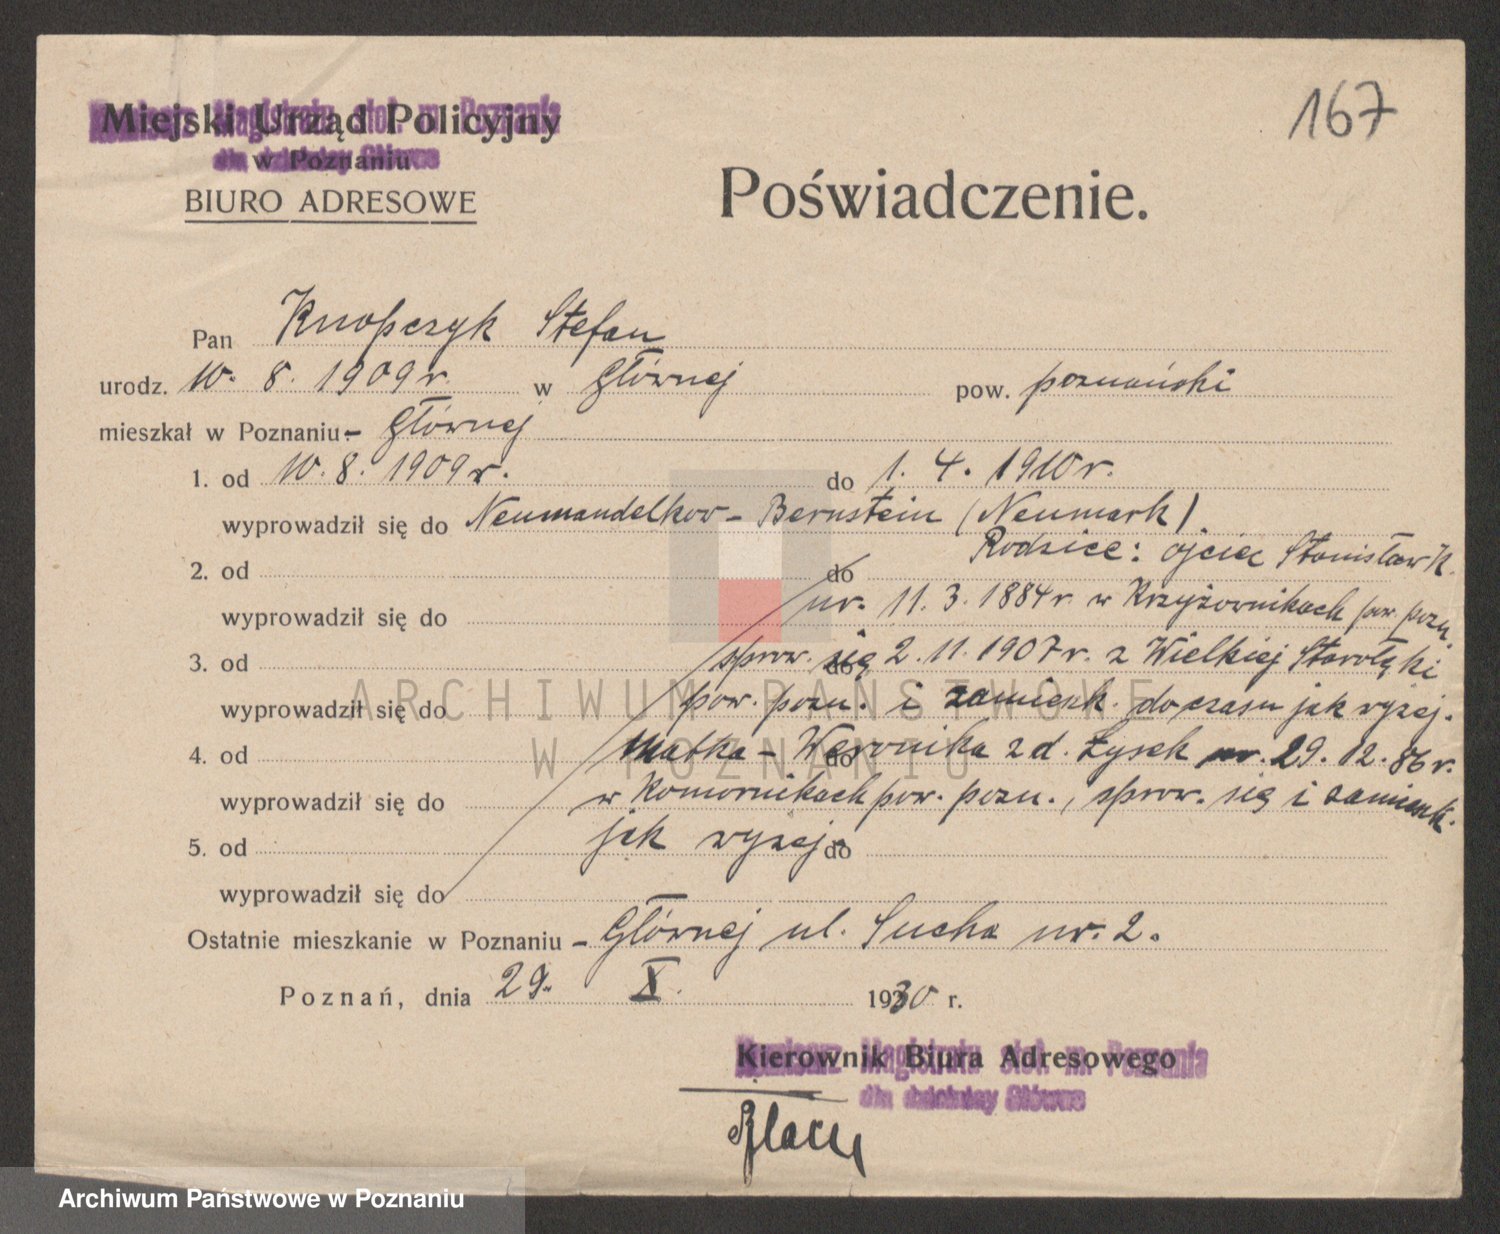 167
Komisarz Magistratu stoł. m. Poznania
Miejski Urząd Policyjny
dla dzielnicy Główna
w Poznaniu
BIURO ADRESOWE
Poświadczenie.
Pan Knopczyk Stefan
urodz. 10. 8. 1909 r. w Głównej pow. poznański
mieszkał w Poznaniu - Głównej
1. od 10. 8. 1909 r. do 1. 4. 1910 r.
wyprowadził się do Neumandelkow - Bernstein (Neumark)
Rodzice: ojciec Stanisław K.
2. od do
wyprowadził się do ur. 11. 3. 1884 r. w Krzyżownikach pow. pozn.
3. od do sprow. się 2. 11. 1907 r. z Wielkiej Starołęki
wyprowadził się do pow. pozn. i zamieszk. do czasu jak wyżej.
4. od do Matka - Weronika z d. Łysek ur. 29. 12. 86 r.
wyprowadził się do w Komornikach pow. pozn., sprow. się i zamieszk.
5. od jak wyżej. do
wyprowadził się do
Ostatnie mieszkanie w Poznaniu - Głównej ul. Sucha nr. 2.
Poznań, dnia 29. X. 1930 r.
Komisarz Magistratu stoł. m. Poznania
Kierownik Biura Adresowego
dla dzielnicy Główna
ARCHIWUM PAŃSTWOWE
W POZNANIU
Archiwum Państwowe w Poznaniu